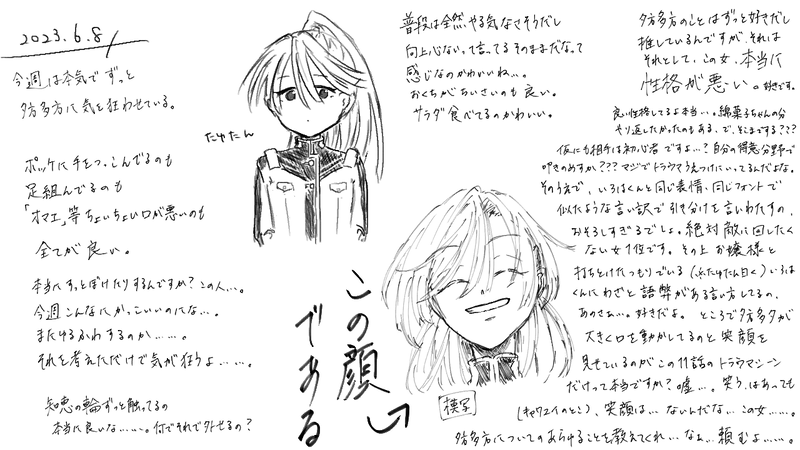 2023.6.8
今週は本気でずっと
夛多方に気を狂わせている。
ポッケに手をつっこんでるのも
足組んでるのも
「オマエ」等ちょいちょい口が悪いのも
全てが良い。
本当にすっとぼけたりするんですか?この人…。
今週こんなにかっこいいのにな…。
またゆるかわするのか……。
それを考えただけで気が狂うよ……。
知恵の輪ずっと触ってるの
本当に良いな……。何でそれで外せるの?
たゆたん
この顔
である
模写
普段は全然やる気なさそうだし
向上心ないって言ってるそのままだなって
感じなのかわいいね…。
おくちがちいさいのも良い。
サラダ食べてるのかわいい。
夛多方のことはずっと好きだし
推しているんですが、それは
それとして、この女、本当に
性格が悪い。好きです。
良い性格してるよ本当。綿菓子ちゃんの分
やり返したかったのもある、で、そこまでする???
仮にも相手は初心者ですよ…?自分の得意分野で
叩きのめすか???マジでトラウマうえつけにいってるんだよな。
そのうえで、いろはくんと同じ表情、同じフォントで
似たような言い訳で引き分けを言いわたすの、
おそろしすぎるでしょ。絶対敵に回したく
ない女1位です。その上お嬢様と
打ちとけたつもりでいる(ふたゆたん曰く)いろは
くんにわざと語弊がある言い方してるの、
あのさぁ…。好きだよ。ところで夛多方が
大きく口を動かしてるのと笑顔を
見せているのがこの11話のトラウマシーン
だけって本当ですか?嘘…。笑うはあっても
(キャワユイのとこ)、笑顔は…ないんだな…この女……。
夛多方についてのあらゆることを教えてくれ…なぁ…頼むよ……。